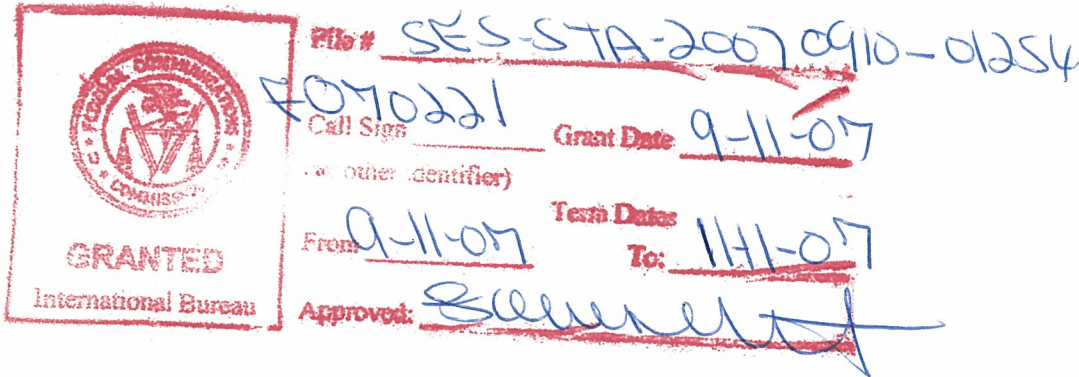 FEDERAL COMMUNICATIONS COMMISSION
GRANTED
International Bureau
File # SES-STA-20070910-01254
E070221
Call Sign Grant Date 9-11-07
other identifier)
Term Dates
From 9-11-07 To: 11-11-07
Approved: